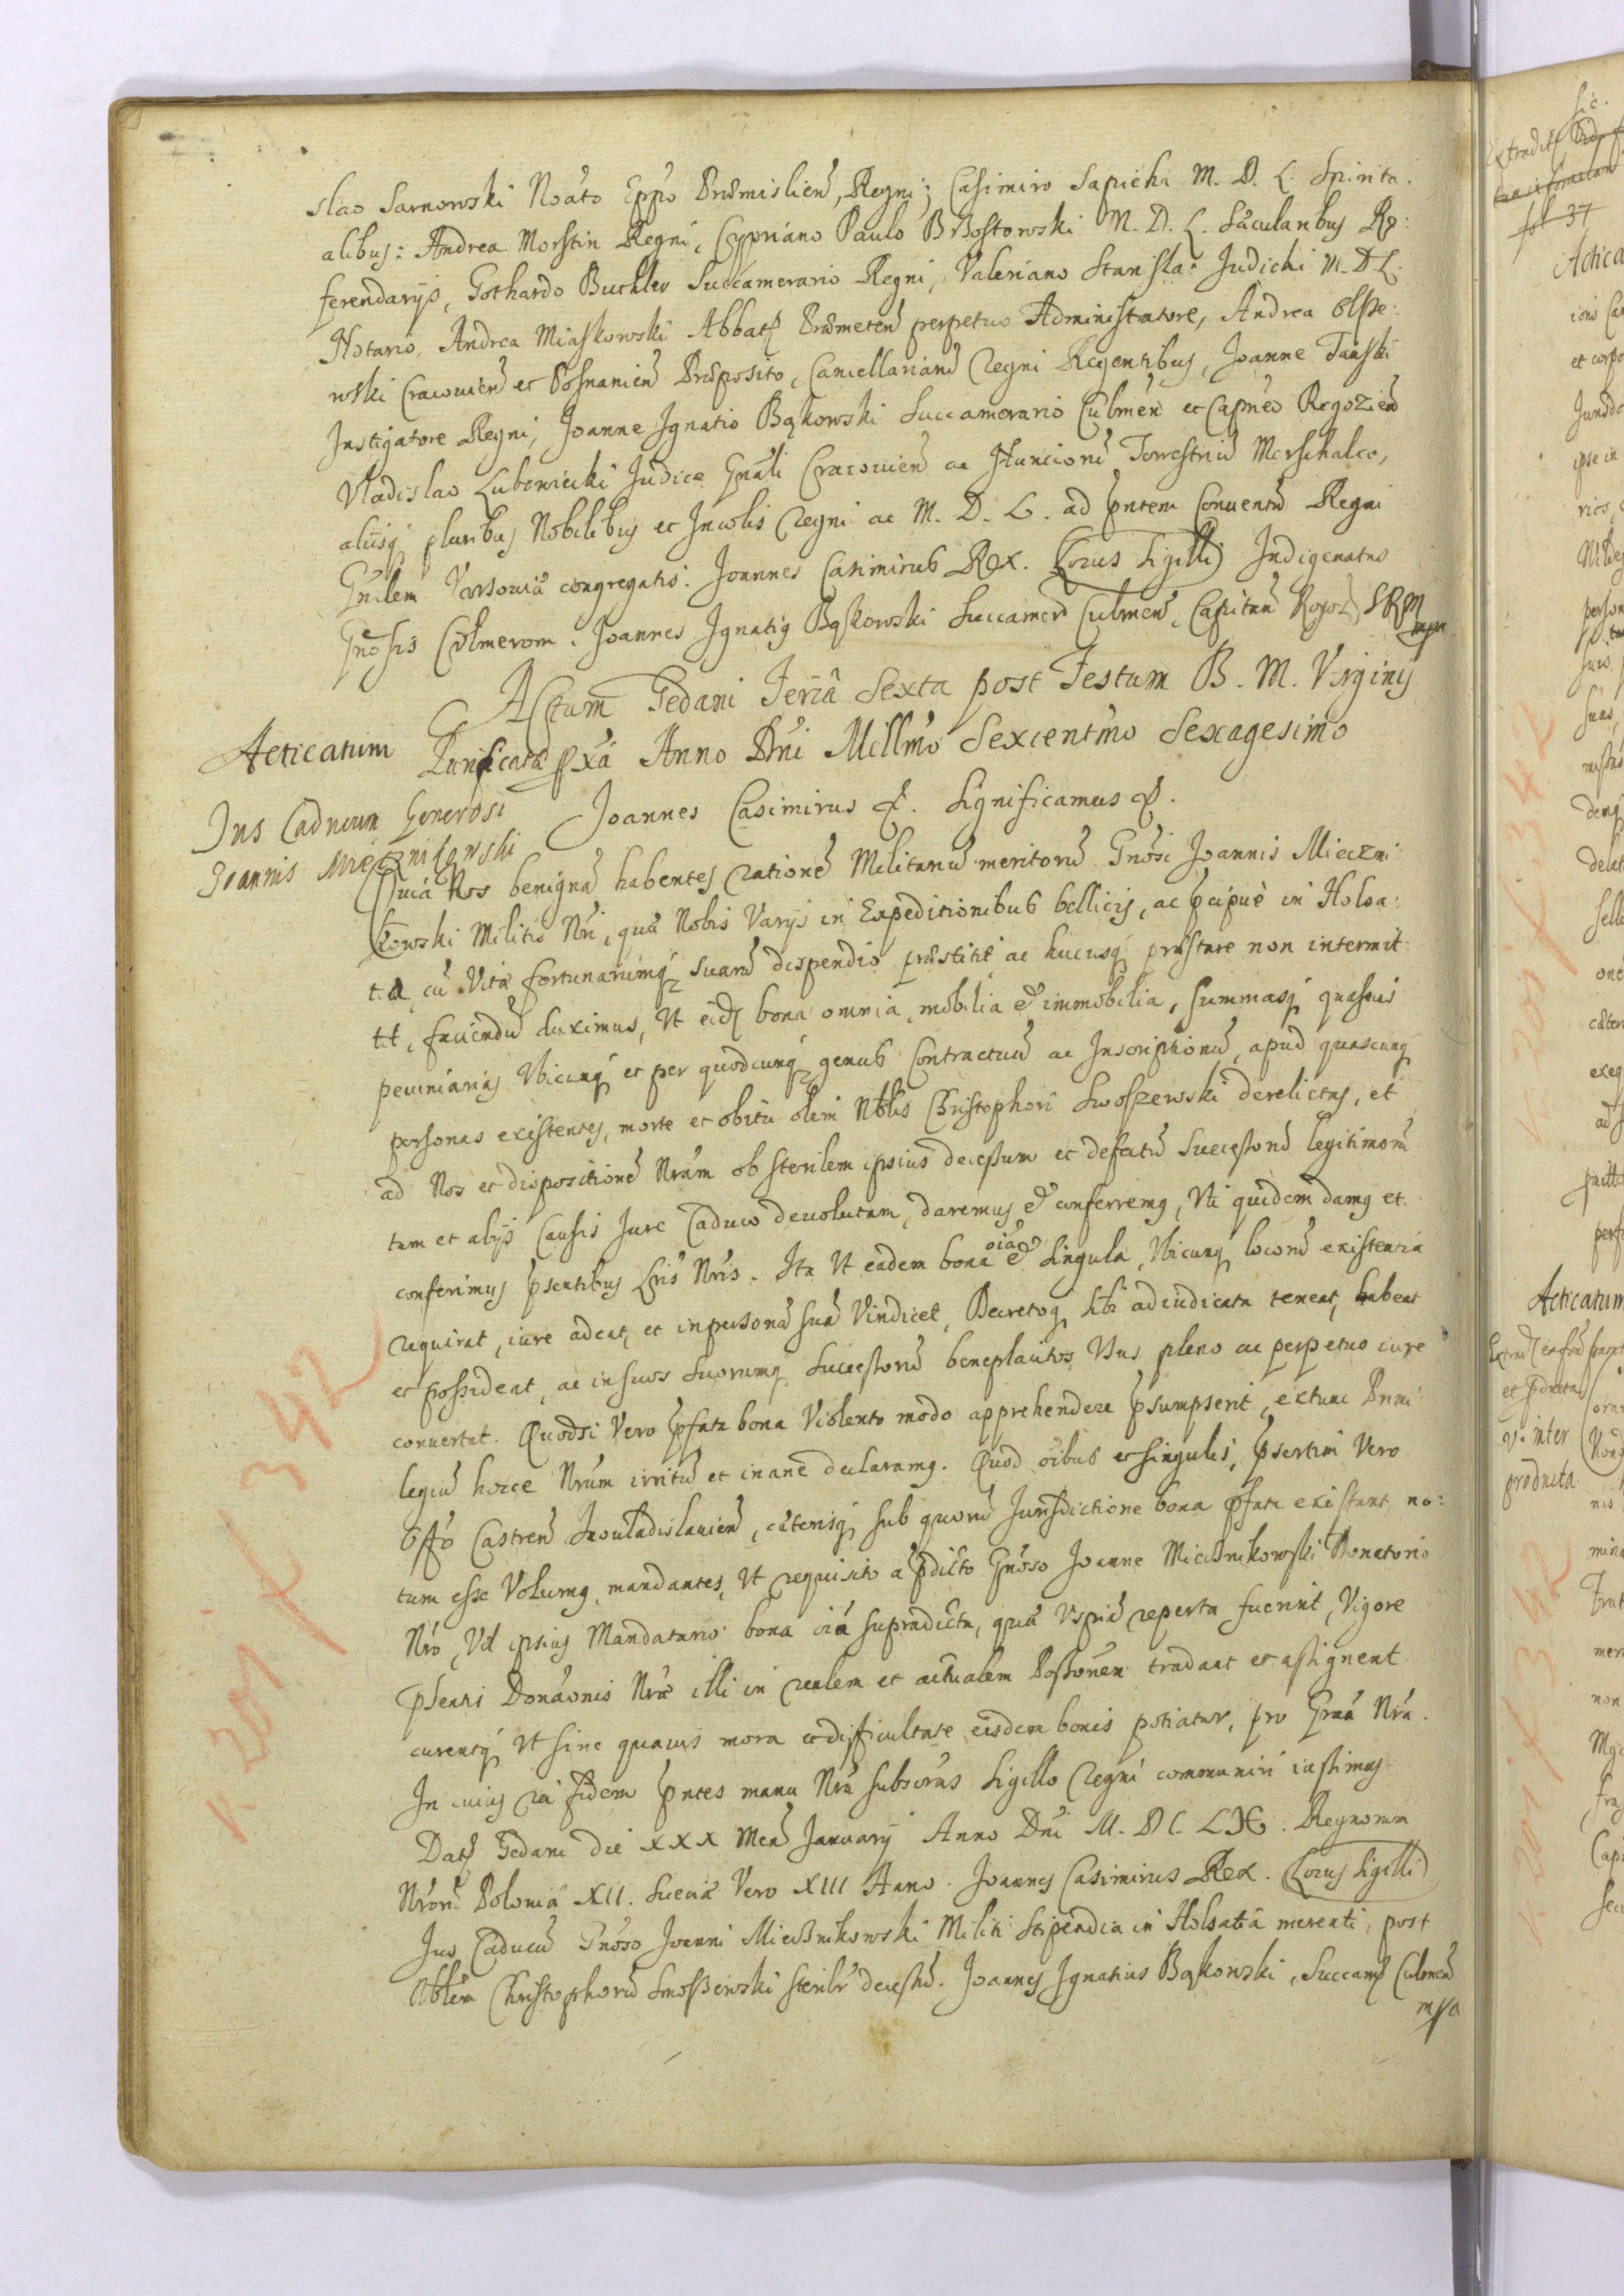 slao Sarnowski Noãto Eppo Præmislien, Regni; Casimiro Sapieha M. D. L. Spiritu-
alibus: Andrea Morstin Regni, Cypriano Paulo Brzostowski M. D. L. Sæcularibus Re:
ferendarijs, Gothardo Buthler Succamerario Regni, Valeriano Stanisla: Judicki M. D. L.
Notario, Andrea Miaskowski Abbat Præmeten perpetuo Administratore, Andrea Olsze:
wski Cracovien et Posnanien Præposito, Cancellarian Regni Regentibus, Joanne Tanski
Instigatore Regni, Joanne Ignatio Bąkowski Succamerario Culmen et Capneo Regozien
Vladislao Lubowiecki Judice Gnãli Cracovien ac Nuncioru Terrestriu Marschalco,
alijsq pluribus Nobilibus et Incolis Regni ac M. D. L. ad pntem Conventu Regni
Gnãlem Varsoviæ congregatis. Joannes Casimirus Rex. Locus Sigilli Indigenatus
Gnosis Colmerom. Joannes Ignatiq Bąkowski Succamer Culmens, Capitan Rogoz SRM
mpa
Actum Gedani Feriâ Sexta post Festum B. M. Virginis
Purificatæ pxã Anno Dni Millmo Sexcentmo Sexagesimo
Acticatum
Jus Caducum Generosi
Joannis Miecznikowski
Joannes Casimirus &. Significamus &.
Quia Nos benigna habentes ratione Militariu meritoru Gnosi Joannis Mieczni
kowski Militis Nri, quæ Nobis Varijs in Expeditionibus bellicis, ac pcipuè in Holsa:
tia cu Vitæ fortunarumq suaru dispendio præstitit ac hucusq præstare non intermit
tit, faciendu duximus, Vt eid bona omnia, mobilia & immobilia, summasq quasvis
pecuniarias Vbicunq et per quodcunq genus Contractuu ac Inscriptionu, apud quascunq
personas existentes, morte et obitu olim Nblis Christophori Swoszewski derelictas, et
ad Nos et dispositione Nram ob sterilem ipsius decessum et defectu Successoru legitimoru
tum et alijs Causis Jure Caduco devolutam, daremus & conferremq, Vti quidem damq et
conferimus psentibus Lris Nris. Ita Vt eadem bona oia & Singula, Vbicunq locoru existentia
requirat, iure adeat, et in persona sua Vindicet, Decretoq sibi adiudicata teneat, habeat
et possideat, ac in suos suorumq Successoru beneplacitos Vsus pleno ac perpetuo iure
convertat. Quodsi Vero pfata bona Violento modo apprehendere psumpserit, extunc Privi
legiu hocce Nrum irritu et inane declaramq. Quod oibus et singulis, psertim Vero
Offo Castren Inovladislavien, cæterisq sub quoru Jurisdictione bona pfata existunt no:
tum esse Volumq, mandantes, Vt requisito a pdicto Gnoso Joanne Miecznikowski Donatorio
Nro, Vel ipsius Mandatario bona oia supradicta, quæ Vspia reperta fuerint, Vigore
psentis Donãonis Nræ illi in realem et actualem Possonem tradant et assignent
curentq Vt sine quavis mora et difficultate eisdem bonis potiatur, pro Graa Nra.
In cuius rei fidem pntes manu Nra subscrãs Sigillo Regni communiri iussimus
Dat Gedani die XXX Mens January Anno Dni M. DC. LX. Regnorum
Nroru Poloniæ XII. Sueciæ Vero XIII Anno. Joannes Casimirus Rex. Locus Sigilli
Jus Caducu Gnoso Joanni Miecznikowski Militi Stipendia in Holsatia merenti, post
Nblem Christophoru Swoszewski sterilr decessu. Joannes Ignatius Bąkowski, Succam Culmen
mpa
k 201 f 342
Extradit
fol 37
Acticatum
et pducta
v. inter
producta
k 201 f 342
k 201 f 342